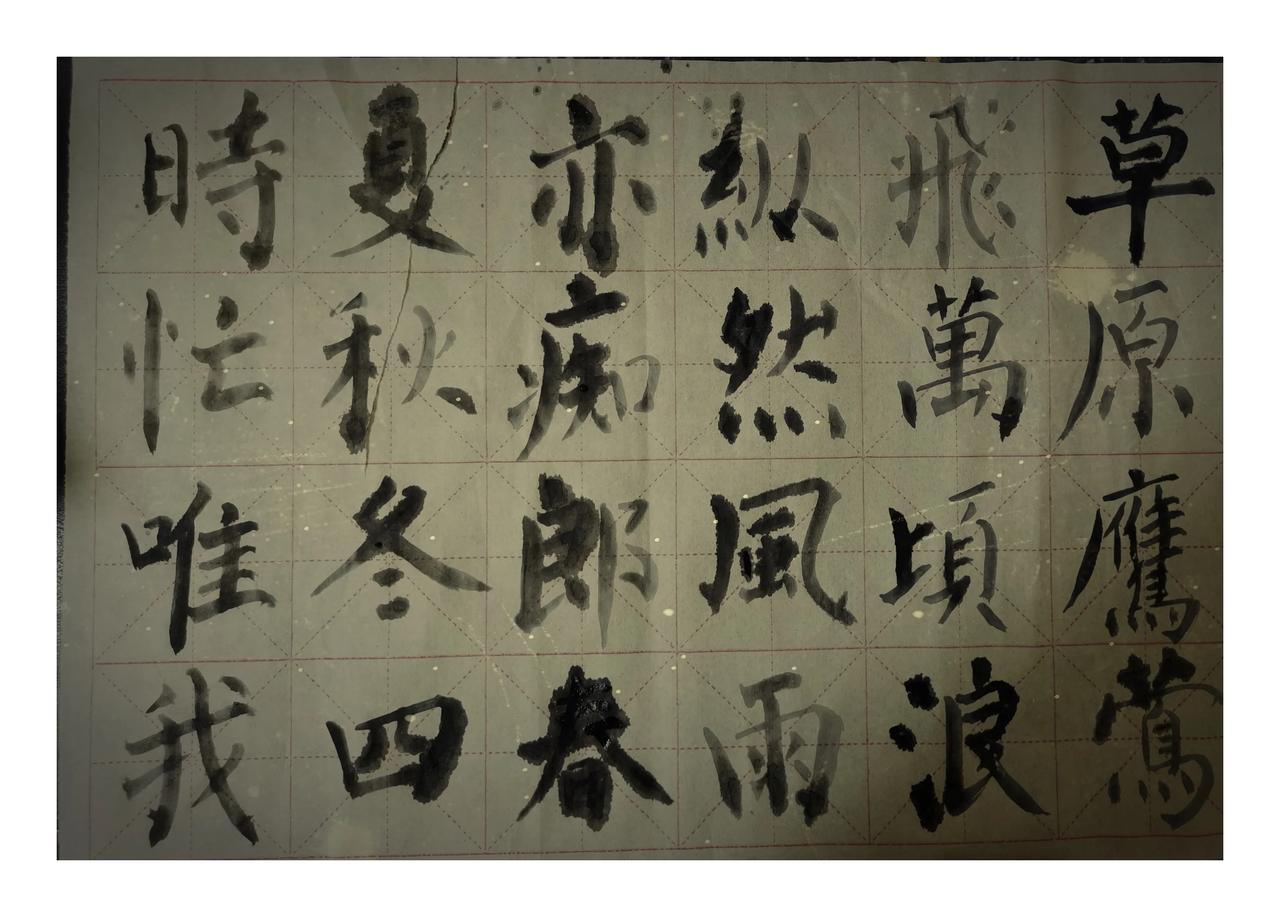 草原鷹鶯
飛萬頃浪
縱然風雨
亦痴郎春
夏秋冬四
時忙唯我